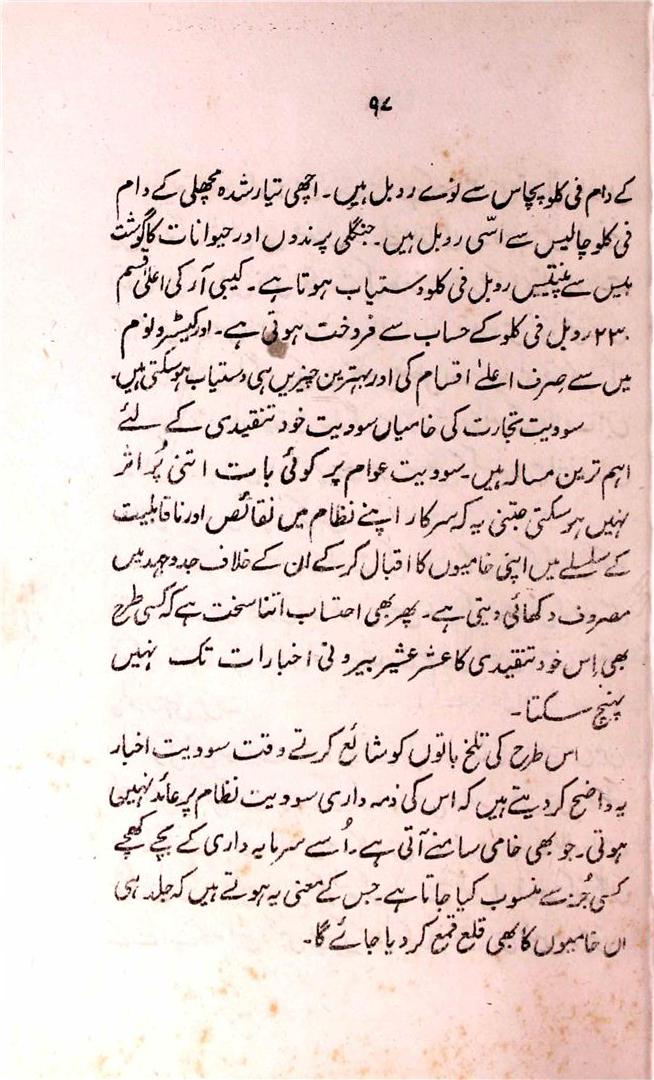 ۹۷
کے دام فی کلو پچاس سے نوّے روبل ہیں۔ اچھی تیار شدہ مچھلی کے دام
فی کلو چالیس سے اسّی روبل ہیں۔ جنگلی پرندوں اور حیوانات کا گوشت
بیس سے پینتیس روبل فی کلو دستیاب ہوتا ہے۔ کیبی آر کی اعلیٰ قسم
۲۳۰ روبل فی کلو کے حساب سے فروخت ہوتی ہے۔ اور گیسٹرونوم
میں سے صرف اعلےٰ اقسام کی اور بہترین چیزیں ہی دستیاب ہو سکتی ہیں۔
سوویت تجارت کی خامیاں سوویت خود تنقیدی کے لئے
اہم ترین مسالہ ہیں۔ سوویت عوام پر کوئی بات اتنی پُر اثر
نہیں ہو سکتی جتنی یہ کہ سرکار اپنے نظام میں نقائص اور ناقابلیت
کے سلسلے میں اپنی خامیوں کا اقبال کر کے ان کے خلاف جدوجہد میں
مصروف دکھائی دیتی ہے۔ پھر بھی احتساب اتنا سخت ہے کہ کسی طرح
بھی اِس خود تنقیدی کا عشر عشیر بیرونی اخبارات تک نہیں
پہنچ سکتا۔
اس طرح کی تلخ باتوں کو شائع کرتے وقت سوویت اخبار
یہ واضح کر دیتے ہیں کہ اس کی ذمہ داری سوویت نظام پر عائد نہیں
ہوتی۔ جو بھی خامی سامنے آتی ہے۔ اُسے سرمایہ داری کے بچے کھچے
کسی جُز سے منسوب کیا جاتا ہے۔ جس کے معنی یہ ہوتے ہیں کہ جلد ہی
ان خامیوں کا بھی قلع قمع کر دیا جائے گا۔